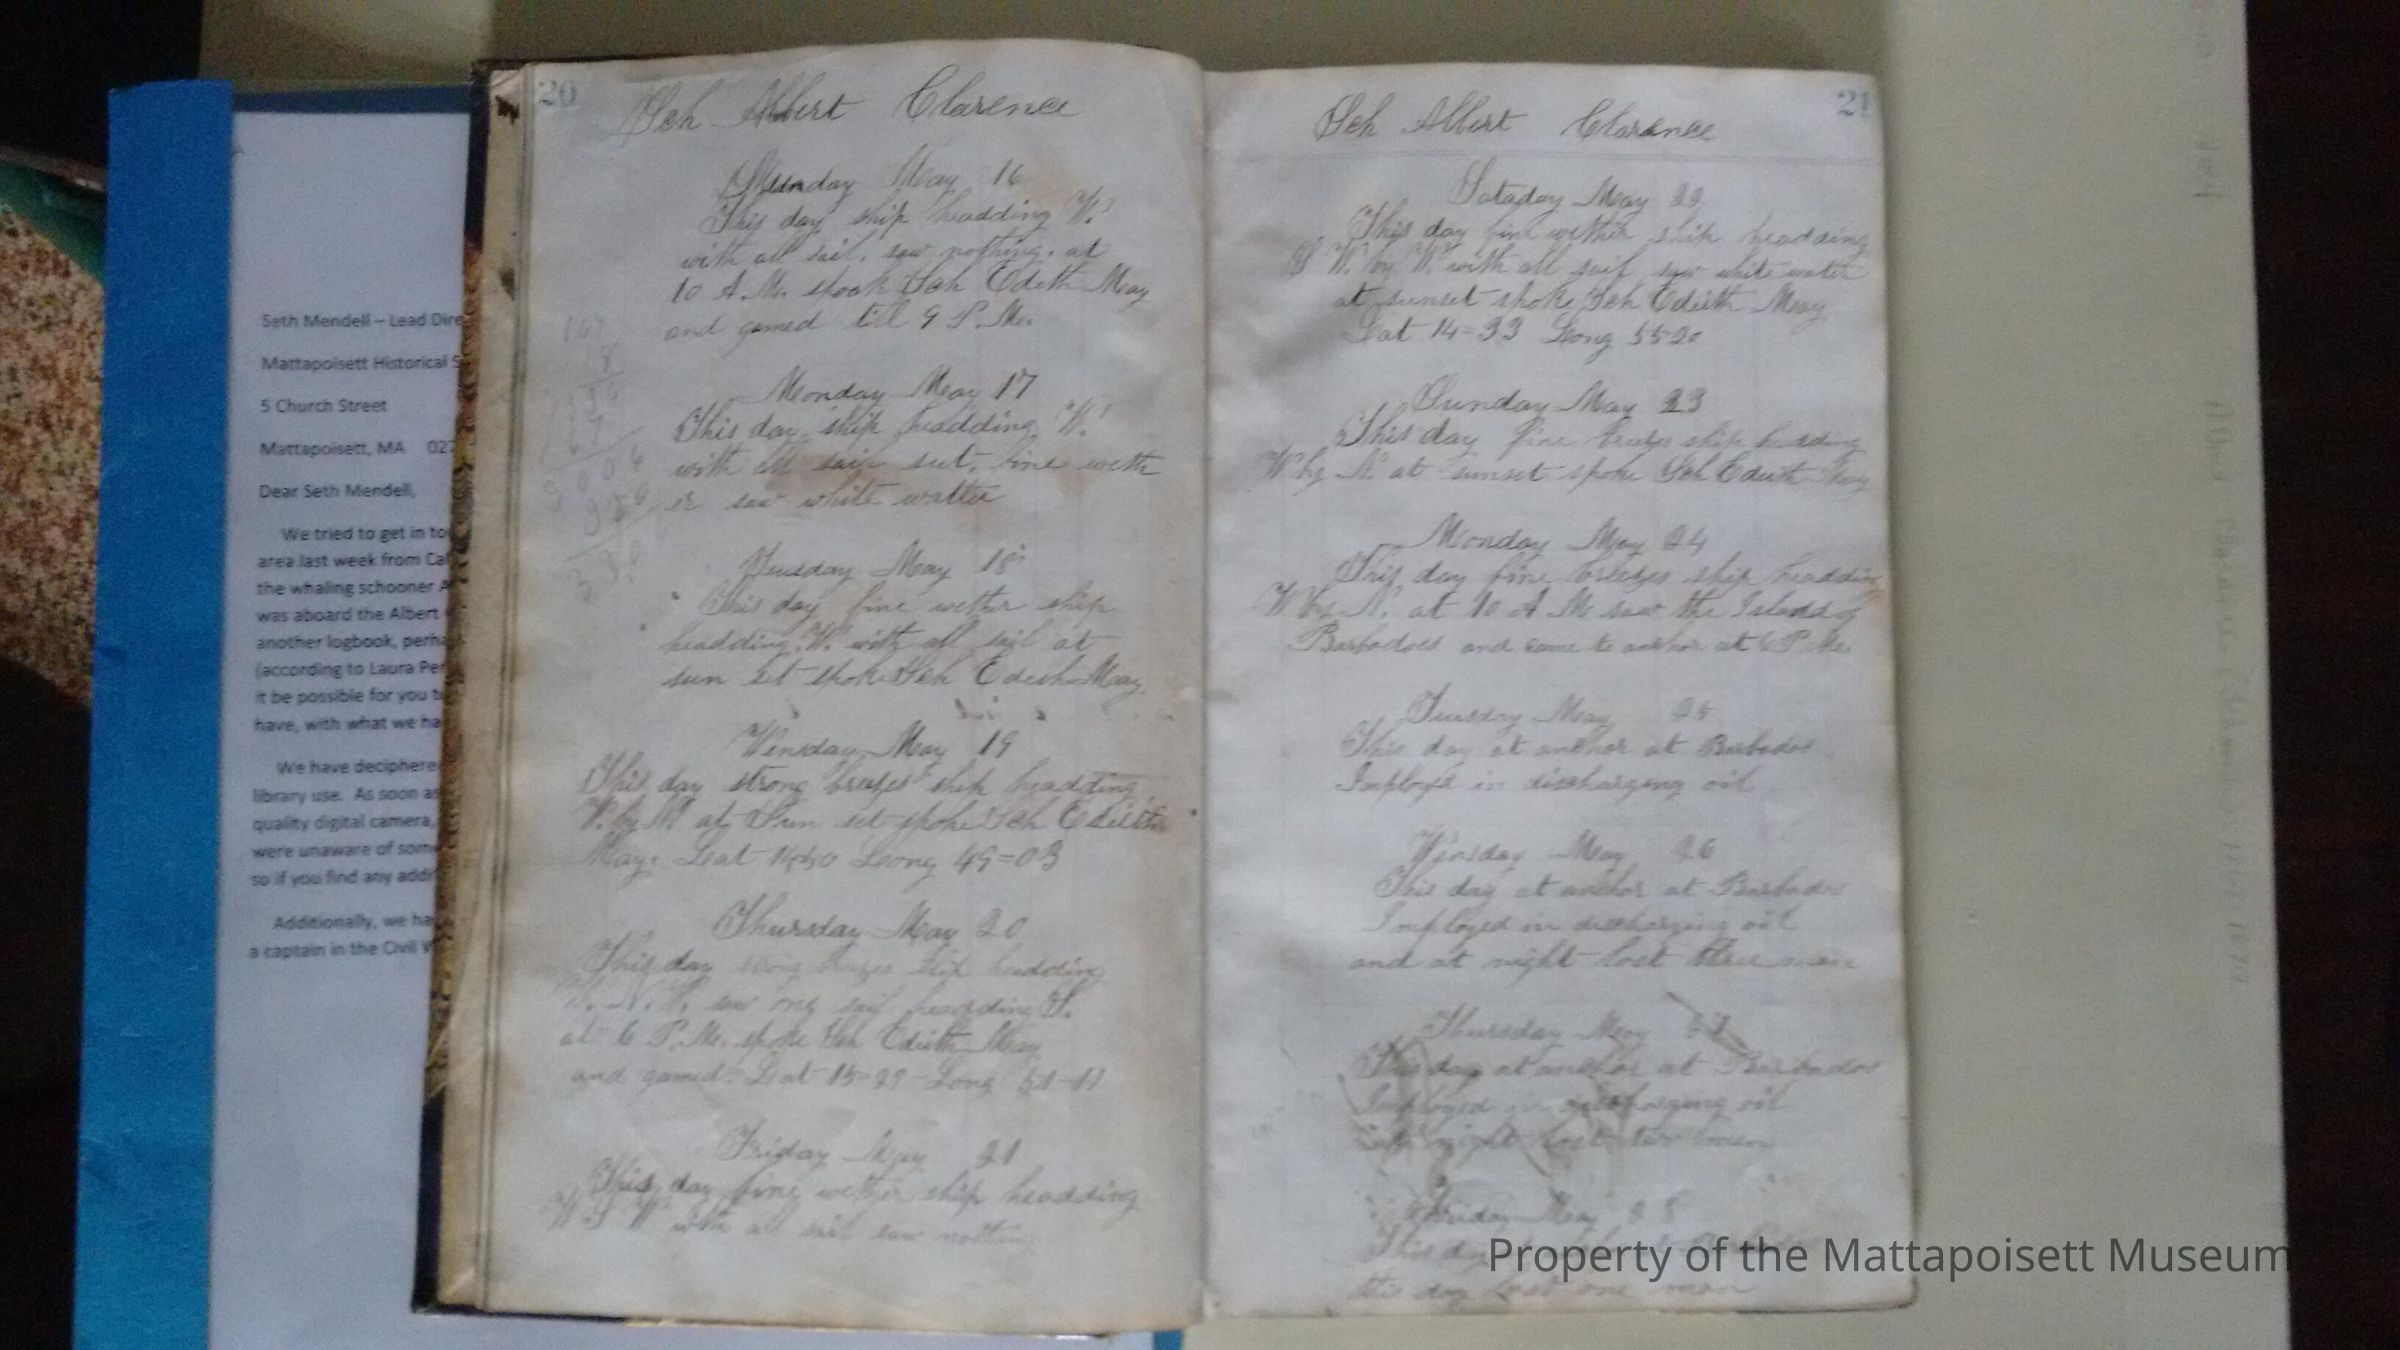 20
Sch Albert Clarence
Sunday May 16
This day ship headding W.
with all sail, saw nothing. at
10 A.M. spook Sch Edeth May
and gamed till 9 P.M.
Monday May 17
This day ship headding W.
with all sail set, fine weth
er saw white watter
Teusday May 18
This day fine wether ship
headding W. with all sail at
sun set spoke Sch Edieth May
Wensday May 19
This day strong brezes ship headding
W. by N at Sun set spoke Sch Edieth
May. Leat Leong 49=03
Thursday May 20
This day strong brezes ship headding
W. N. W. saw one sail headding S.
at 6 P.M. spoke Sch Edieth May
and gamed. Leat 15-29 Long 51-11
Friday May 21
This day fine wether ship headding
W S W with all sail saw nothing
21
Sch Albert Clarence
Sataday May 22
This day fine wether ship headding
S W. by W. with all sail saw white water
at sunset spoke Sch Edieth May
Lat 14=33 Leong 55 20
Sunday May 23
This day fine brezes ship hedding
W by N. at sunset spoke Sch Edieth May
Monday May 24
This day fine brezes ship headding
W by N. at 10 A M saw the Island of
Barbadoes and came to anchor at 6 P.M.
Teusday May 25
This day at anchor at Barbados
Imployd in discharging oil
Wensday May 26
This day at anchor at Barbados
Imployed in discharging oil
and at night lost three men
Thursday May 27
This day at anchor at Barbados
Imployed in discharging oil
night lost two men
Friday May 28
This day
this day lost one man
Seth Mendell – Lead Dire
Mattapoisett Historical S
5 Church Street
Mattapoisett, MA 027
Dear Seth Mendell,
We tried to get in to
area last week from Cal
the whaling schooner A
was aboard the Albert
another logbook, perha
(according to Laura Per
it be possible for you t
have, with what we ha
We have deciphere
library use. As soon as
quality digital camera,
were unaware of som
so if you find any addi
Additionally, we ha
a captain in the Civil W
Property of the Mattapoisett Museum